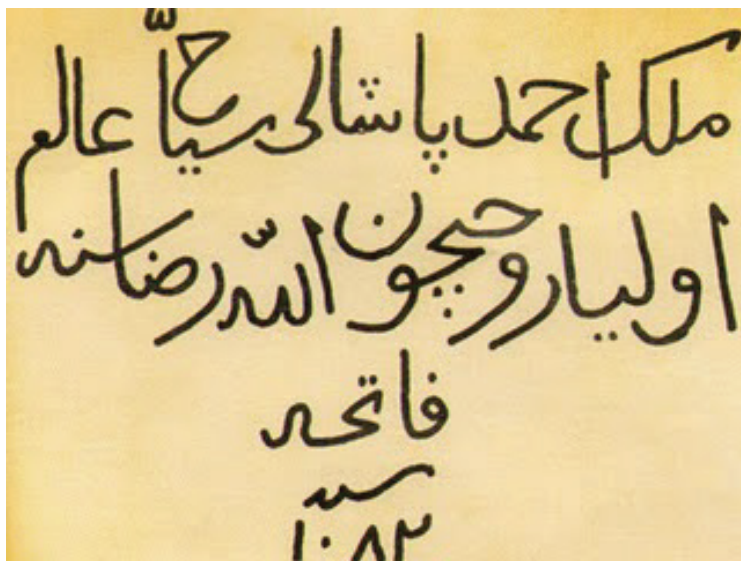 ملك احمد پاشالی سیّاح عالم
اولیا روحیچون اللّه رضاسنه
فاتحه
سنه
۱۰۸۲